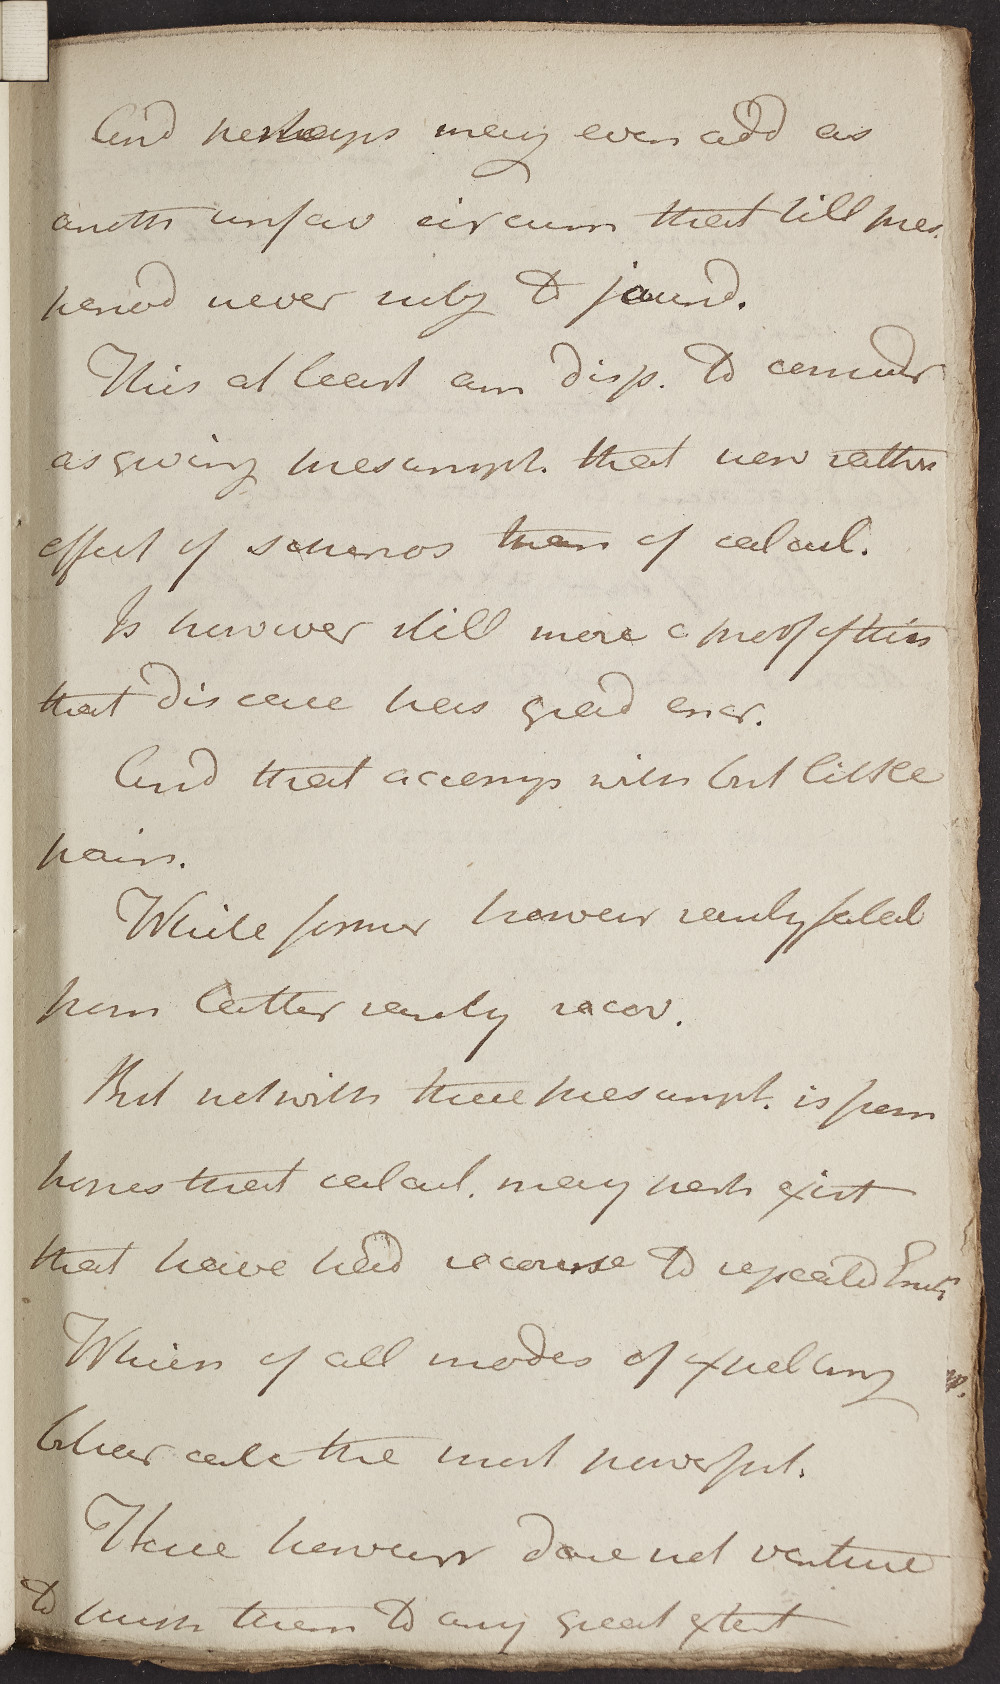 And perhaps may even add as
anoth unfav circum that till pres.
period never subj to jaund.
This at least am disp. to consider
as giving presumpt. that now rather
effect of scherros than of calcul.
Is however still more a proof of this
that disease has grad encr.
And that accomp with but little
pain.
While former however rarely fatal
from latter rarely recov.
But notwith these presumpt. is from
hopes that calcul. may perh exist
that have had recourse to repeated Emet
Which of all modes of expelling
biliar calc the most powerful.
I have however dare not venture
to push them to any great extent